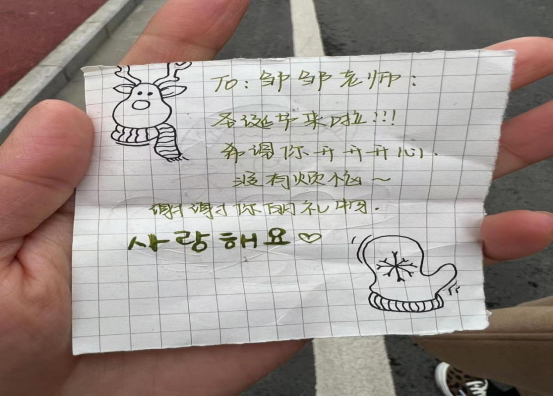 TO：邹邹老师：
圣诞节来啦!!!
希望你开开开心.
没有烦恼~
谢谢你的礼物.
사랑해요♡